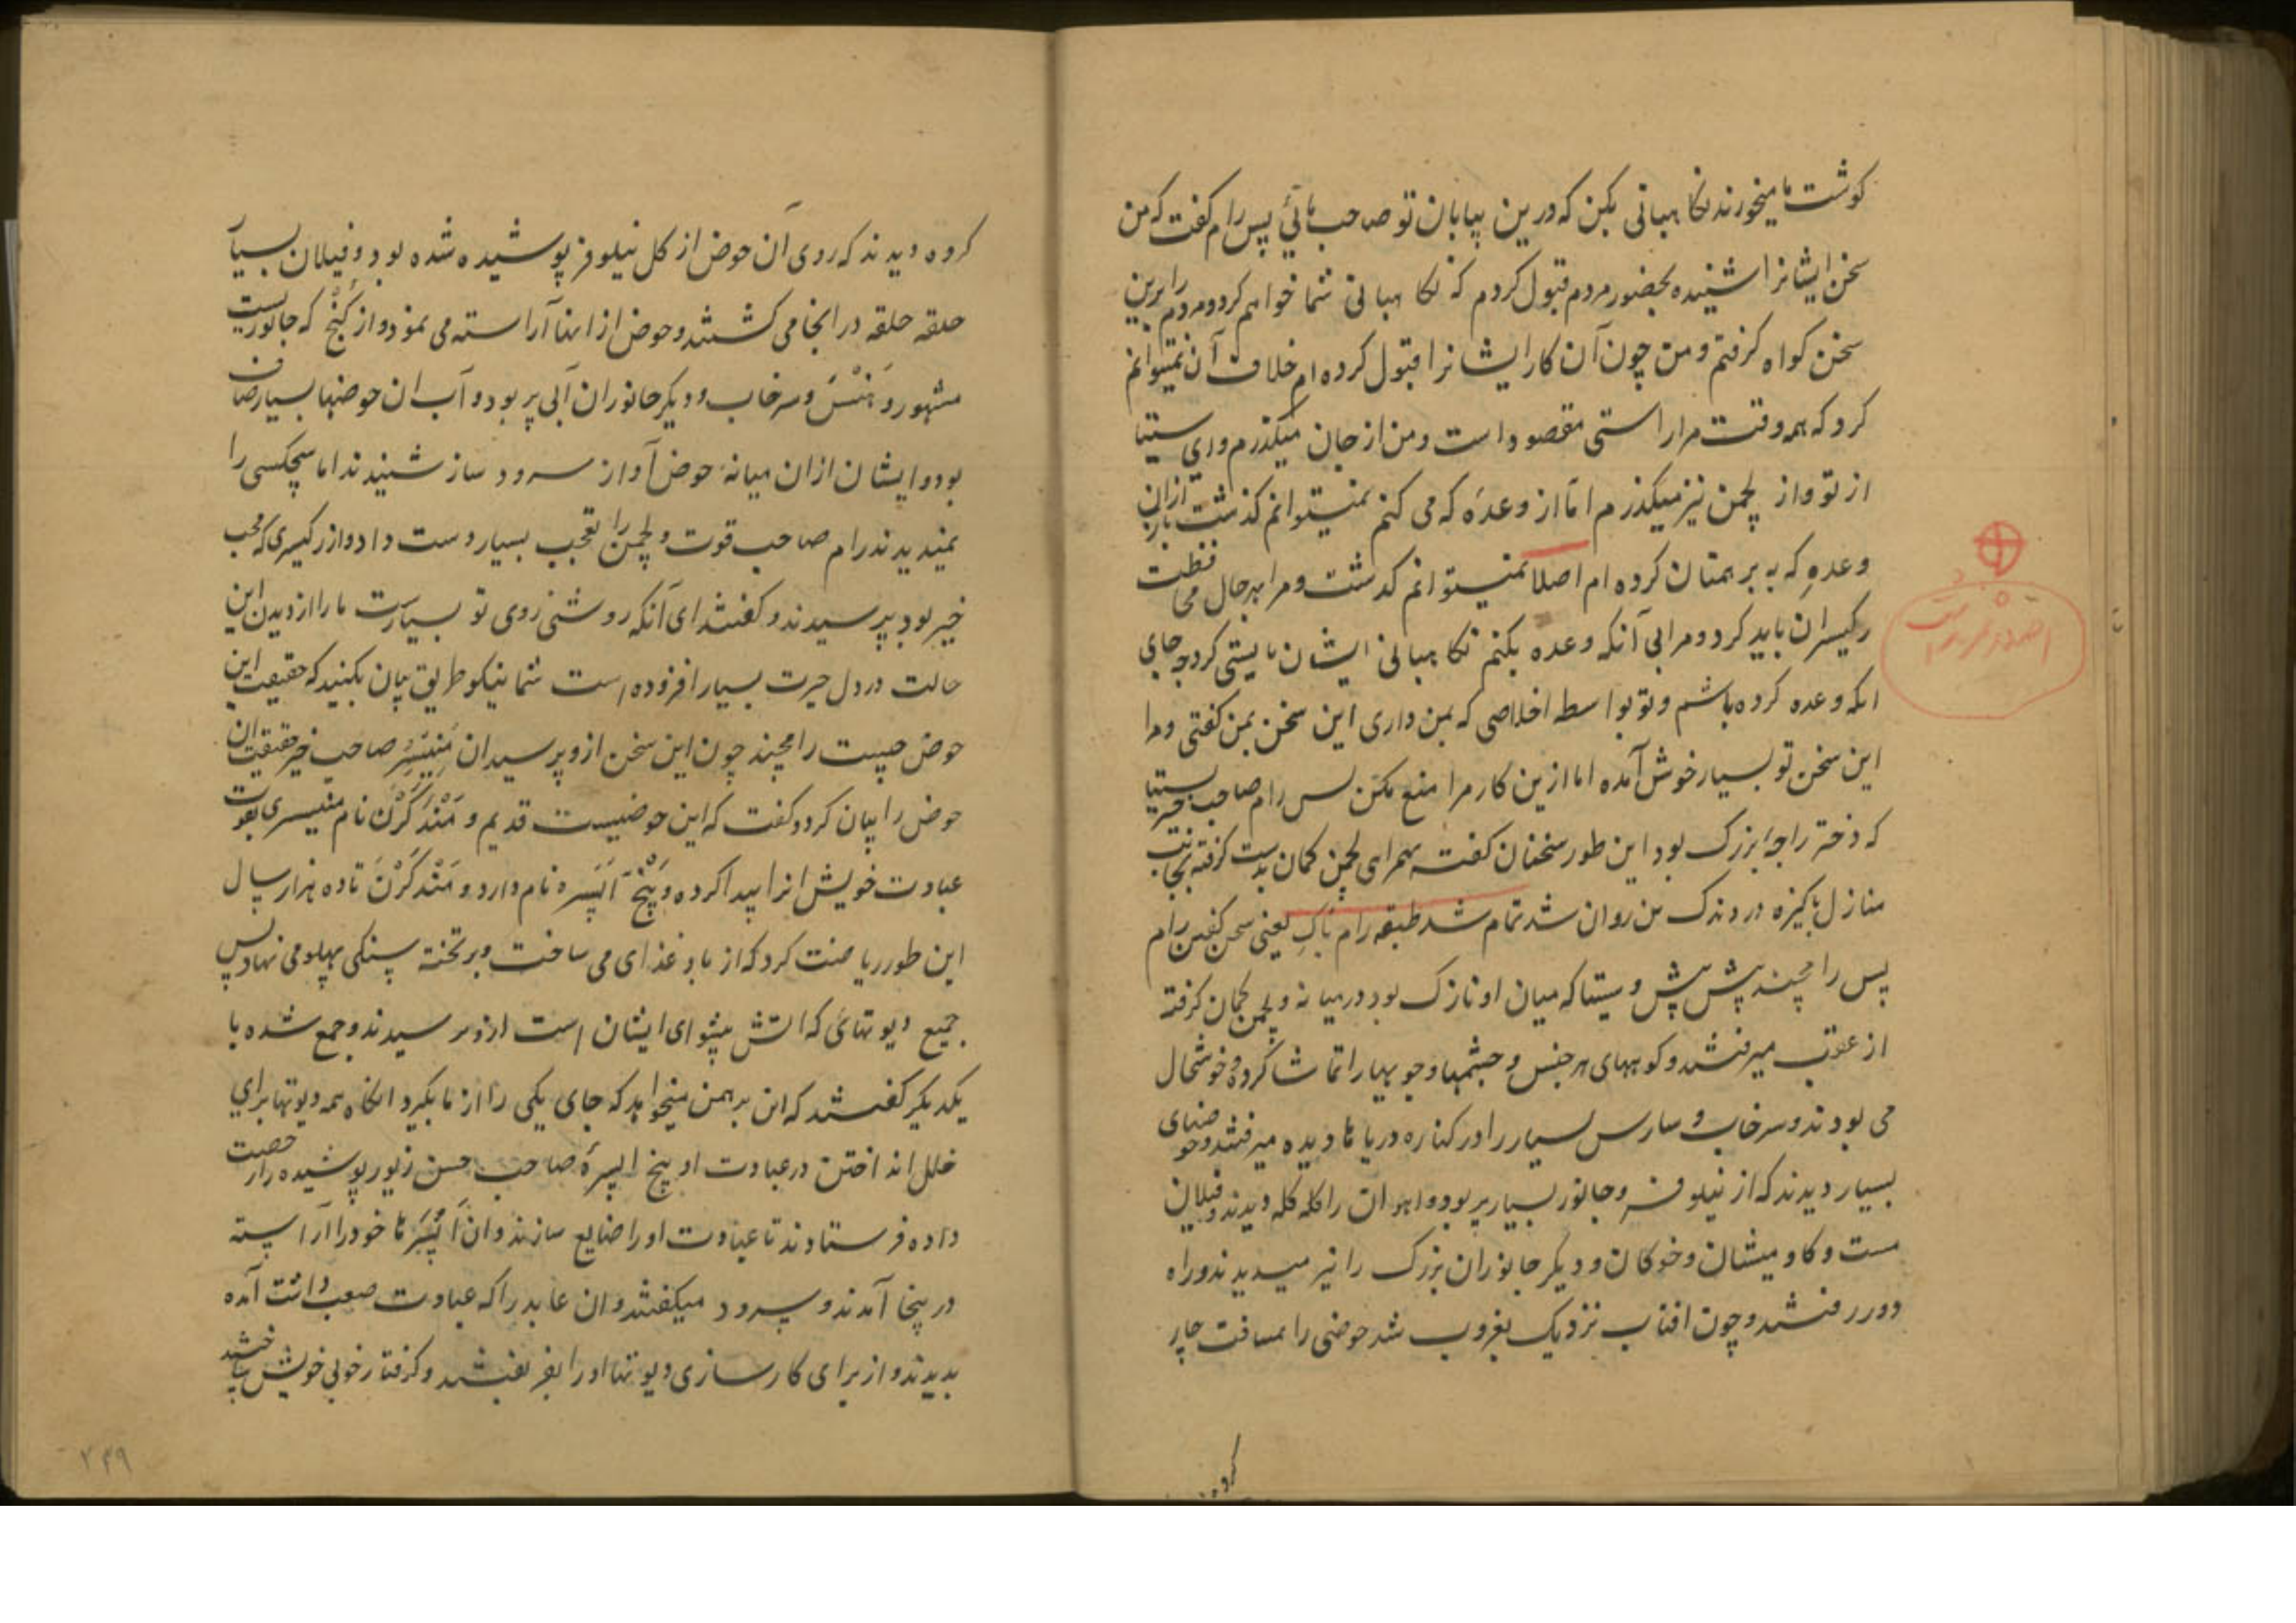 کوشت ما میخورند نکاهبانی بکن که درین بیابان تو صاحب مائی پس رام کفت که من
سخن ایشانرا شنیده بحضور مردم قبول کردم که نکاهبانی شما خواهم کرد و مردم را برین
سخن کواه کرفتم و من چون آن کار ایشانرا قبول کرده ام خلاف آن نمیتوانم
کرد که همه وقت مرا راستی مقصود است و من از جان میکذرم و ای سیتا
از تو و از لچمن نیز میکذرم اما از وعدۀ که می کنم نمیتوانم کذشت ازان
وعدهٔ که به برهمنان کرده ام اصلا نمیتوانم کذشت و مرا بهرحال محافظت
رکیسران باید کرد و مرا بی آنکه وعده بکنم نکاهبانی ایشان بایستی کرد چه جای
انکه وعده کرده باشم و تو بواسطه اخلاصی که بمن داری این سخن بمن کفتی و مرا
این سخن تو بسیار خوش آمده اما ازین کار مرا منع مکن پس رام صاحب سیتا
که دختر راجۀ بزرک بود این طور سخنان کفت همرای لچمن کمان بدست کرفته بجانب
منازل پاکیزه در دندک بن روان شد تمام شد طبقه رام باک یعنی سخن کفتن رام
پس رامچند پیش پیش و سیتا که میان او نازک بود در میانه و لچمن کمان کرفته
از عقب میرفتند و کوههای هر جنس و چشمها و جویها را تماشا کرده خوشحال
می بودند و سرخاب و سارس بسیار را در کناره دریاها دیده میرفتند و حوضهای
بسیار دیدند که از نیلوفر و جانور بسیار پر بود و اهوان را کله کله دیدند و فیلان
مست و کاومیشان و خوکان و دیکر جانوران بزرک را نیز میدیدند و راه
دور رفتند و چون افتاب نزدیک بغروب شد حوضی را بمسافت چار
کروه
کروه دیدند که روی آن حوض از کل نیلوفر پوشیده شده بود و فیلان بسیار
حلقه حلقه در انجا می کشتند و حوض از انها آراسته می نمود و از کنج که جانوریست
مشهور و هنس و سرخاب و دیکر جانوران آبی پر بود و آب ان حوضها بسیار صاف
بود و ایشان ازان میانۀ حوض آواز سرود ساز شنیدند اما هیچکسی را
نمیدیدند رام صاحب قوت و لچمن را تعجب بسیار دست داد و از رکیسری که
خبیر بود پرسیدند و کفتند ای آنکه روشنی روی تو بسیارست ما را از دیدن این
حالت در دل حیرت بسیار افزوده است شما نیکو طریق بیان بکنید که حقیقت این
حوض چیست رامچند چون این سخن ازو پرسید ان منیسر صاحب خیر حقیقت ان
حوض را بیان کرد و کفت که این حوضیست قدیم و مندکرن نام منیسری بقوت
عبادت خویش انرا پیدا کرده و پنج اپسره نام دارد و مندکرن تا ده هزار سال
این طور ریاضت کرد که از باد غذای می ساخت و بر تخته سنکی پهلو می نهاد پس
جمیع دیوتهای که اتش پیشوای ایشان است ازو ترسیدند و جمع شده با
یکدیکر کفتند که این برهمن میخواهد که جای یکی را از ما بکیرد انکاه همه دیوتها برای
خلل انداختن در عبادت او پنج اپسرۀ صاحب حسن زیور پوشیده را رخصت
داده فرستادند تا عبادت او را ضایع سازند و ان اپسرها خود را آراسته
درینجا آمدند و سرود میکفتند و ان عابد را که عبادت صعب داشت آمده
بدیدند و از برای کارسازی دیوتها او را بفریفتند و کرفتار خوبی خویش ساختند
۲۴۹